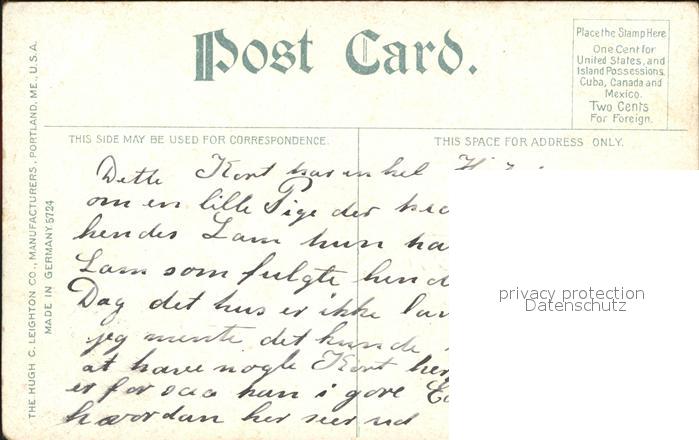 Post Card.
Place the Stamp Here
One Cent for
United States, and
Island Possessions.
Cuba, Canada and
Mexico.
Two Cents
For Foreign.
THIS SIDE MAY BE USED FOR CORRESPONDENCE.
THIS SPACE FOR ADDRESS ONLY.
THE HUGH C. LEIGHTON CO., MANUFACTURERS, PORTLAND, ME., U.S.A.
MADE IN GERMANY. 5724
Dette Kort har en hel
om en lille Pige der
hendes Lam hun
Lam som fulgte
Dag det hus er ikke
jeg mente det kunde
at have nogle Kort her
er for saa kan i gore
hvordan her seer ud
privacy protection
Datenschutz